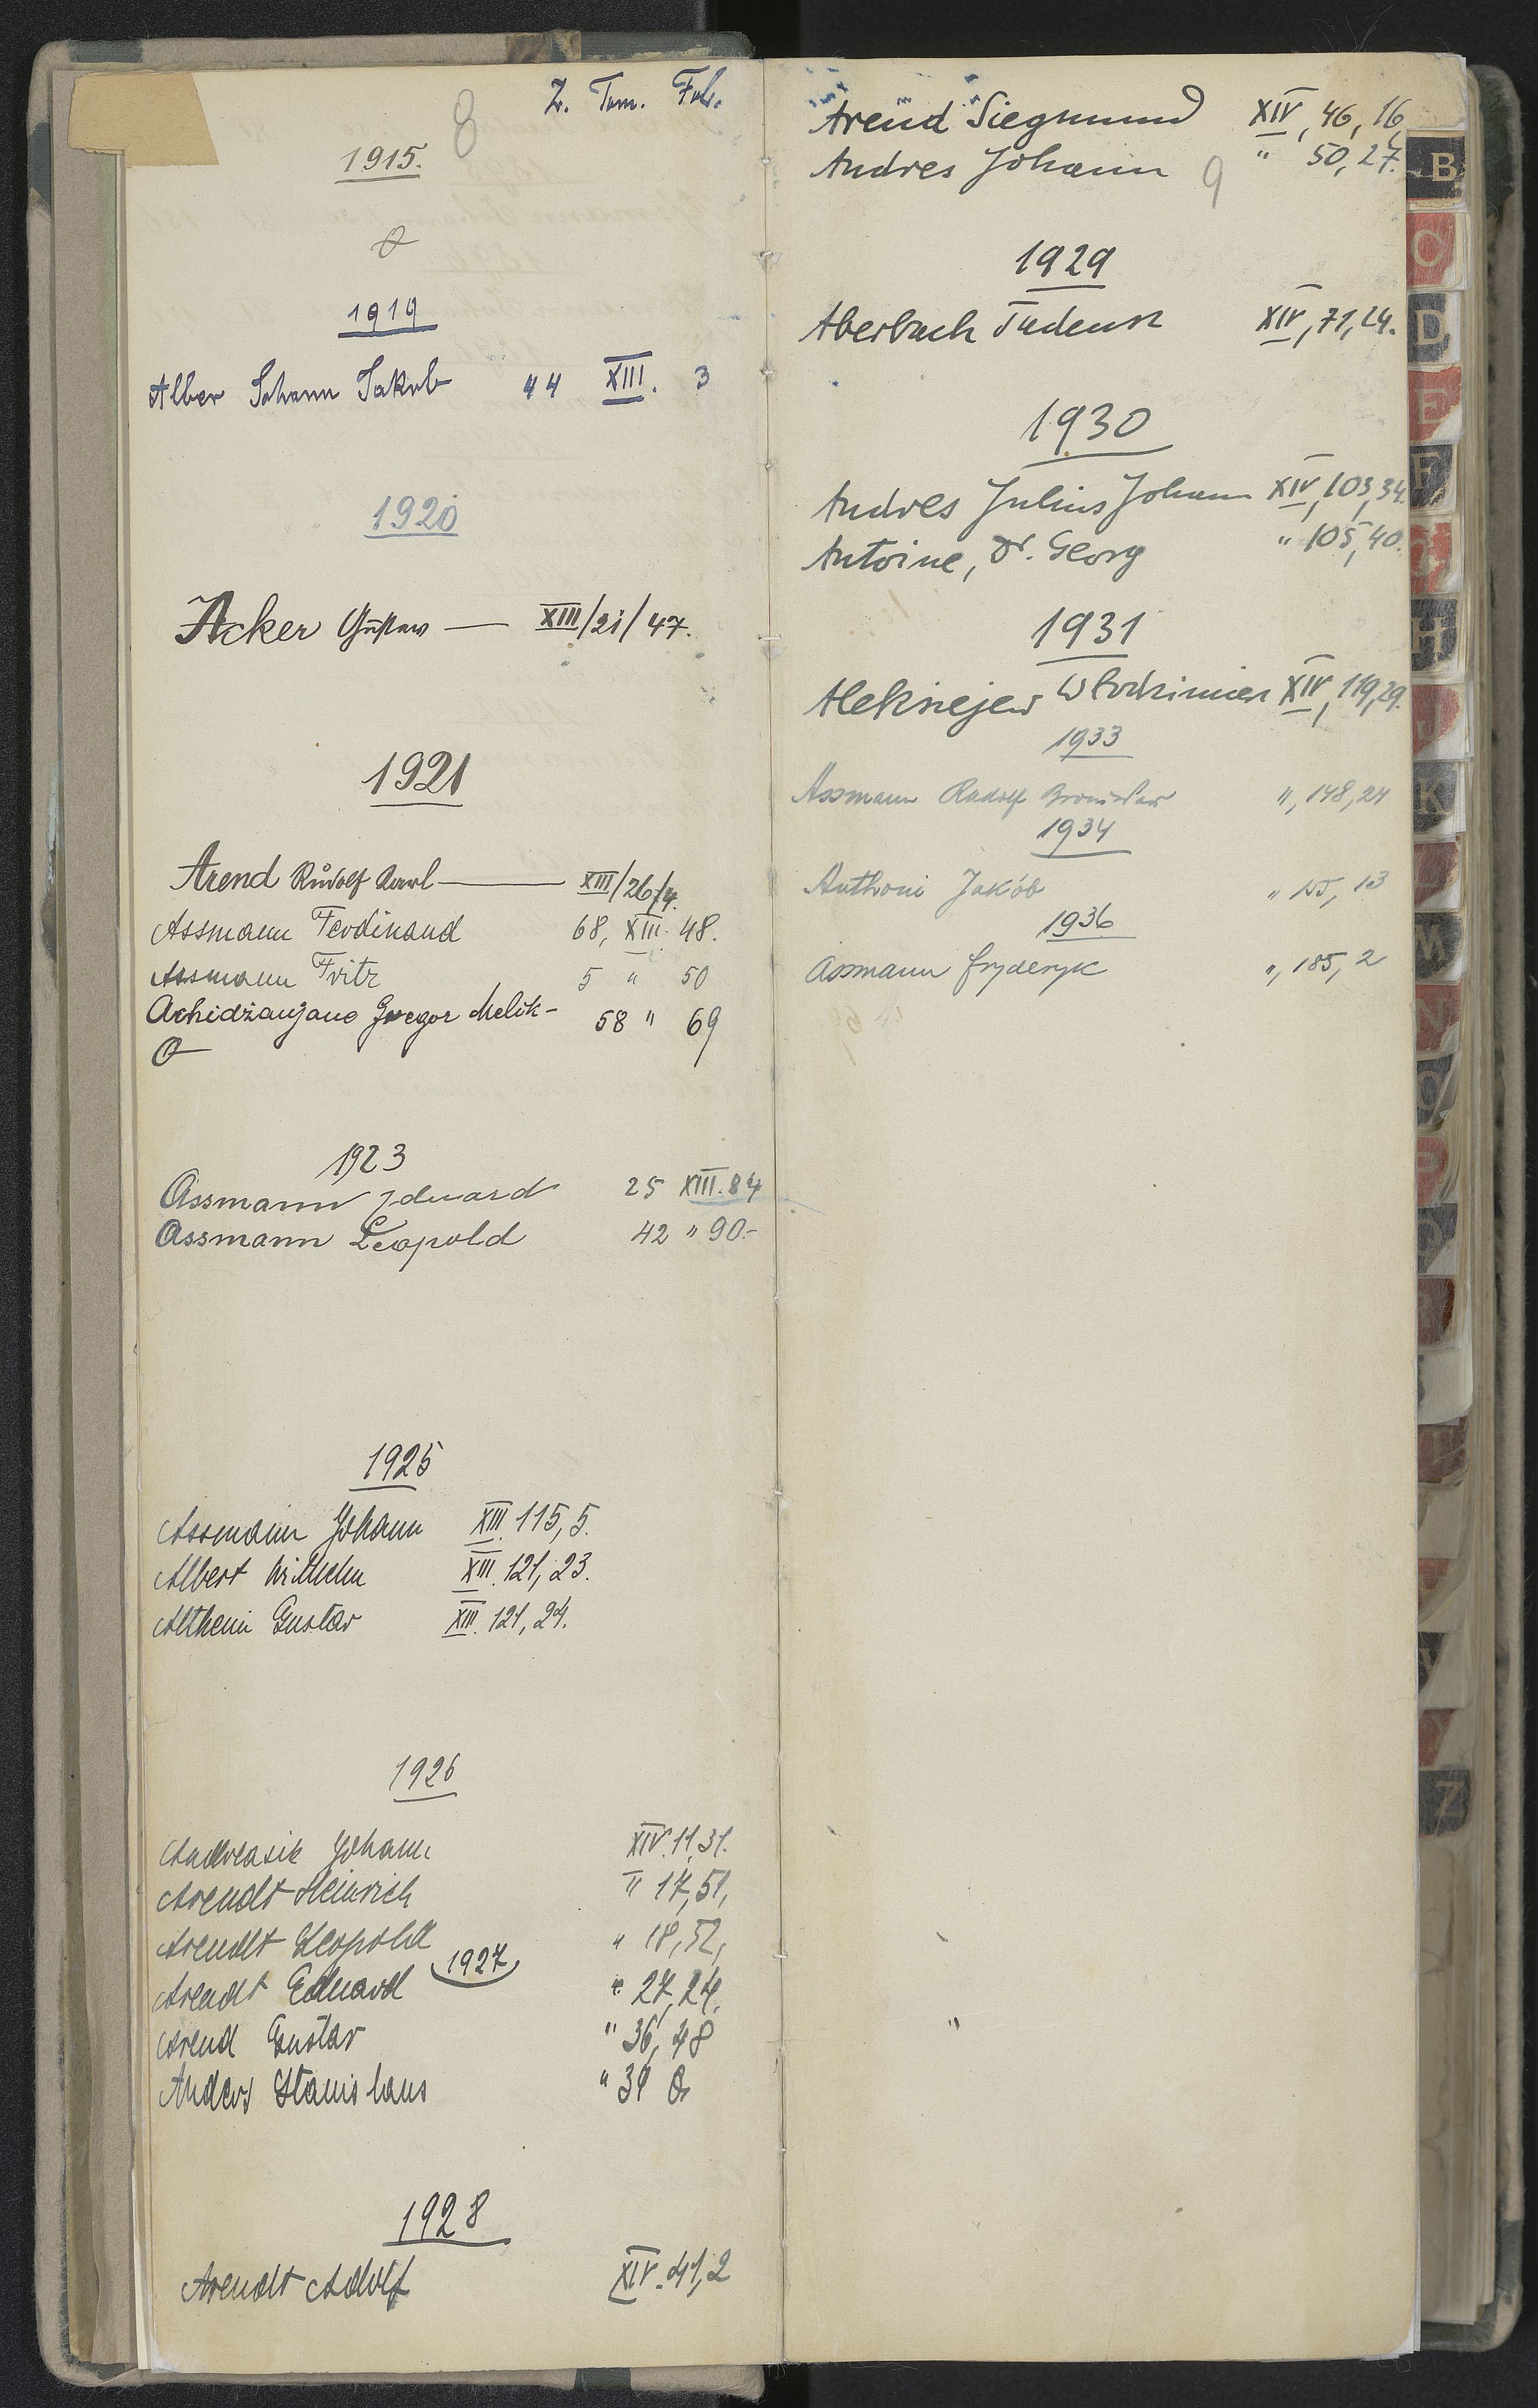 8
Z. Tom. Fol.
1915.
1919
Alber Johann Jakob 44 XIII. 3
1920
Acker Gustaw — XIII/21/47.
1921
Arend Rudolf Karl — XIII/26/4.
Assmann Ferdinand 68, XIII. 48.
Assmann Fritz 5 " 50
Achidżanjanc Gregor Melik- 58 " 69
1923
Assmann Eduard 25 XIII. 84
Assmann Leopold 42 " 90.-
1925
Assmann Johann XIII. 115, 5.
Albert Wilhelm XIII. 121, 23.
Altheim Gustav XIII. 121, 24.
1926
Andreasik Johann XIV. 11, 31.
Arendt Heinrich " 17, 51,
Arendt Leopold " 18, 52,
1927
Arendt Eduard " 27, 24,
Arend Gustav " 36, 48
Anders Stanislaus " 39
1928
Arendt Adolf XIV. 41, 2
Arend Siegmund XIV, 46, 16
Andres Johann " 50, 27.
9
1929
Aberbach Tadeusz XIV, 71, 24.
1930
Andres Julius Johann XIV, 103, 34.
Antoine, Dr. Georg " 105, 40.
1931
Aleksiejew Włodzimierz XIV, 119, 29.
1933
Assmann Rudolf Bronisław ", 148, 24
1934
Anthoni Jakób " 155, 13
1936
Assmann Fryderyk ", 185, 2
B
C
D
E
F
G
H
J
K
L
M
N
O
P
Z